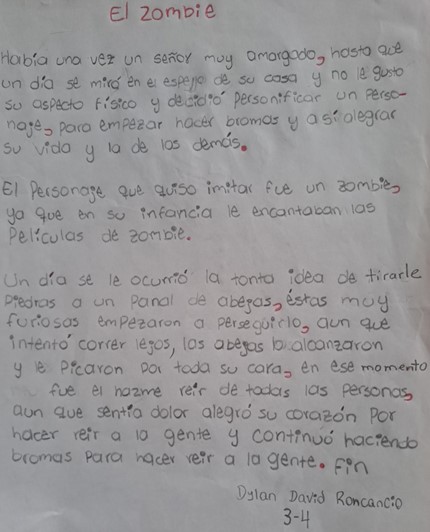 El zombie
Había una vez un señor muy amargado, hasta que
un día se miró en el espejo de su casa y no le gusto
su aspecto físico y decidió personificar un perso-
naje, para empezar hacer bromas y así alegrar
su vida y la de los demás.
El Personaje que quiso imitar fue un zombie,
ya que en su infancia le encantaban las
Películas de zombie.
Un día se le ocurrió la tonta idea de tirarle
Piedras a un Panal de abegas, éstas muy
furiosas empezaron a perseguirlo, aun que
intentó correr lejos, las abegas lo alcanzaron
y le Picaron por toda su cara, en ese momento
fue el hazme reír de todas las personas,
aun que sentía dolor alegró su corazón Por
hacer reír a la gente y continuó haciendo
bromas Para hacer reír a la gente. Fin
Dylan David Roncancio
3-4